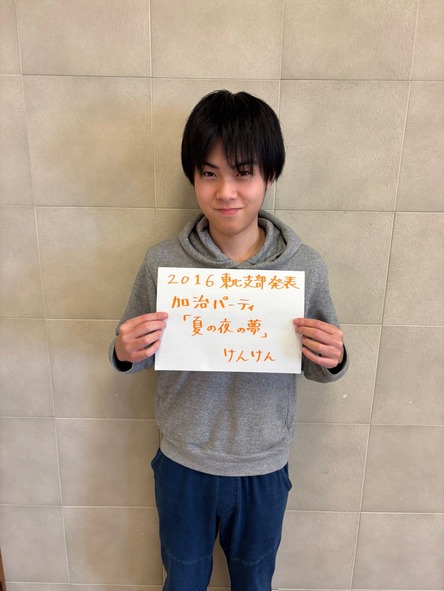 2016東北支部発表
加治パーティ
「夏の夜の夢」
けんけん